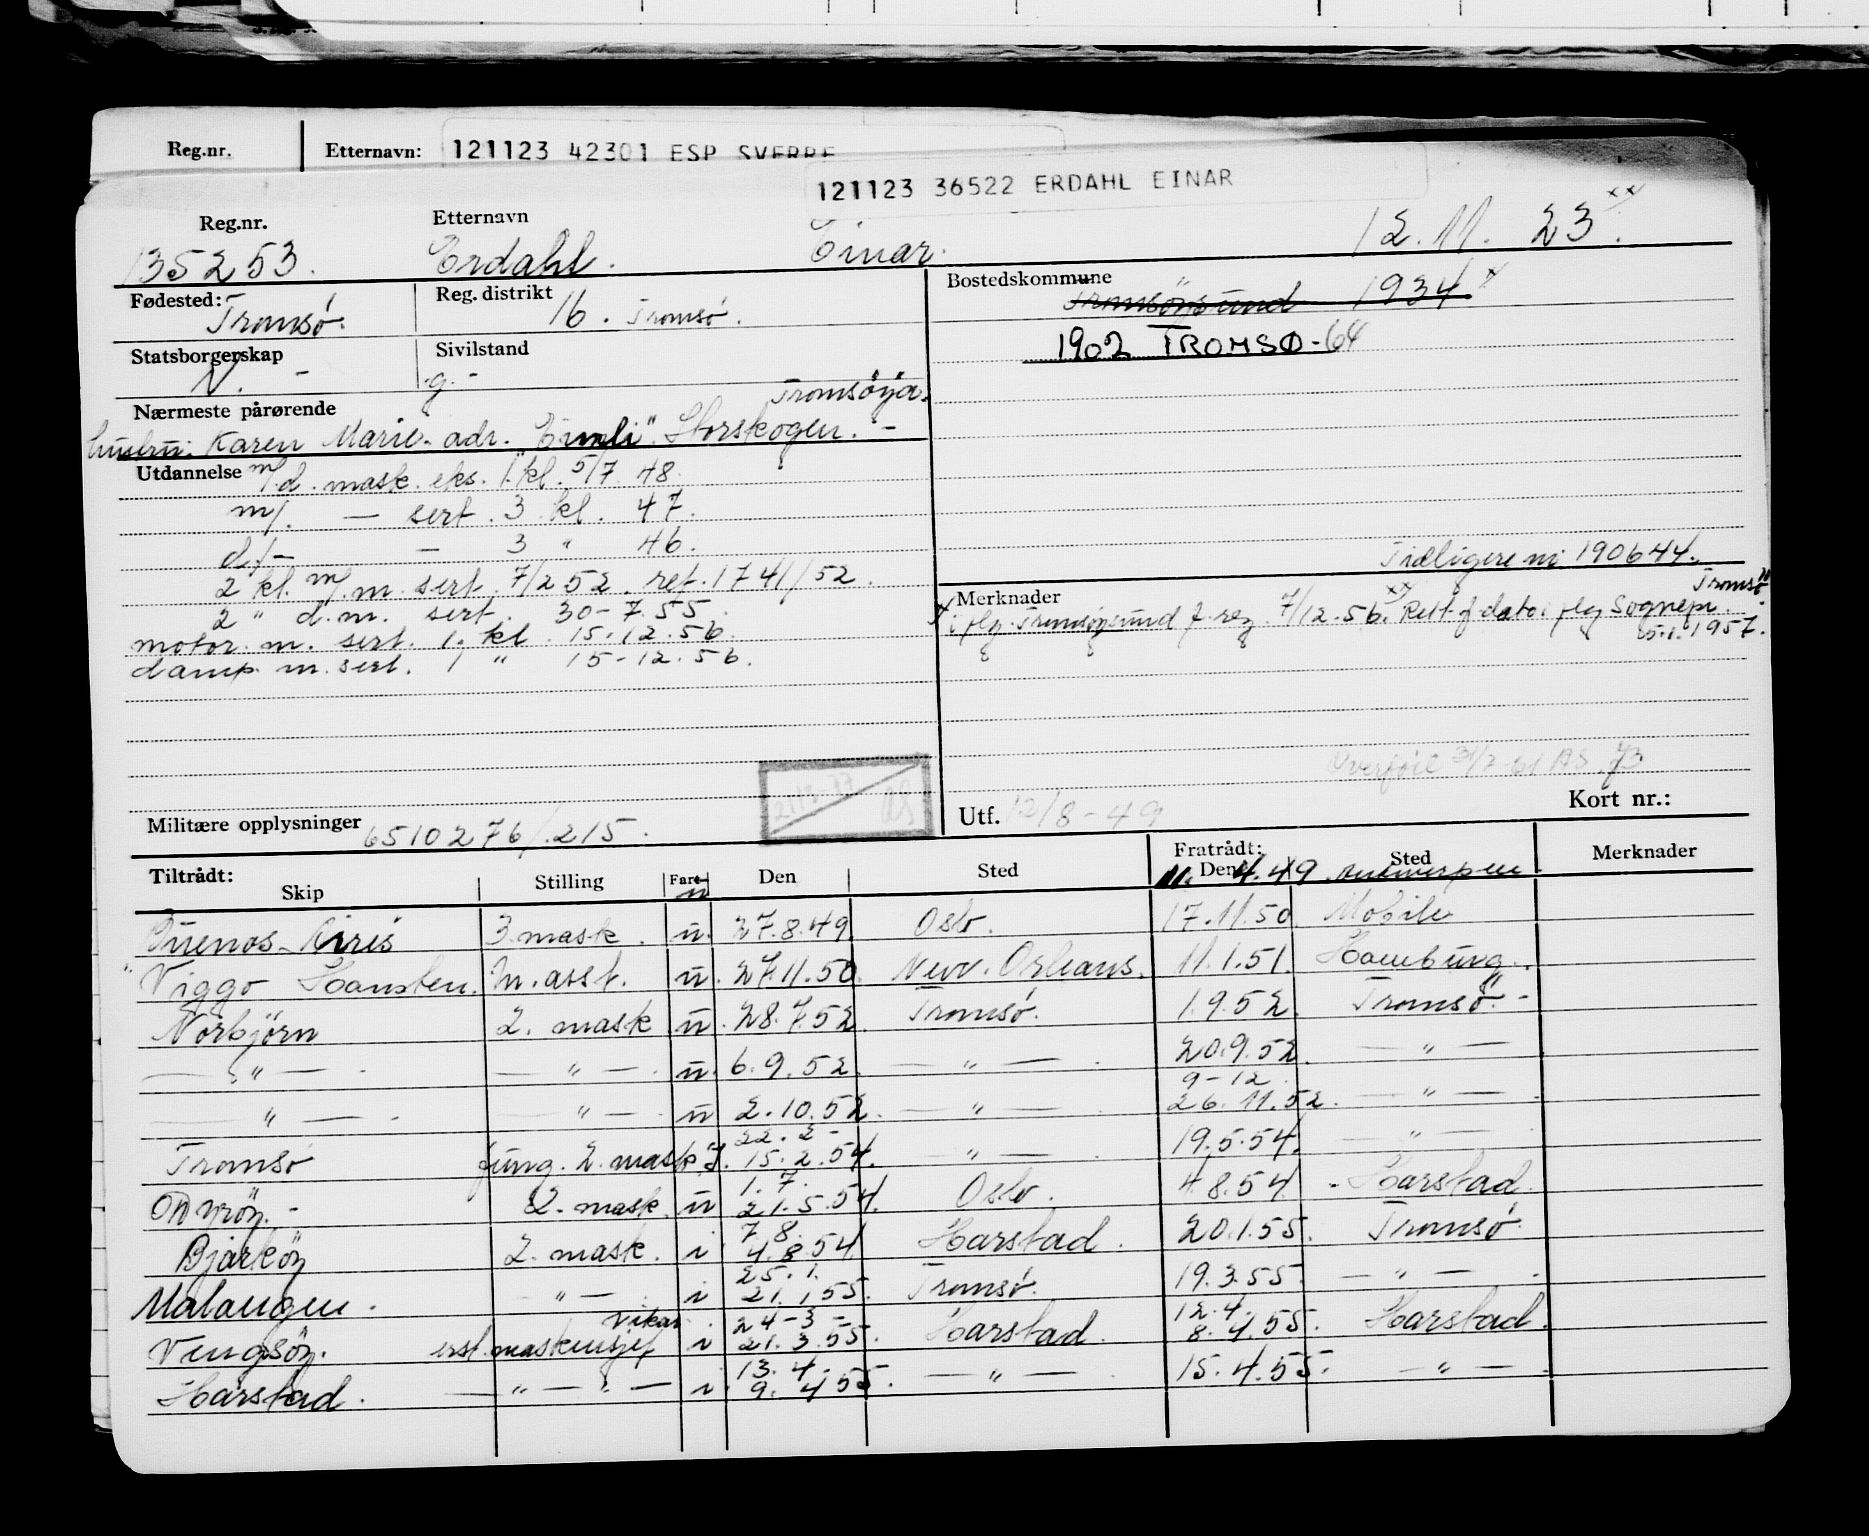 Reg.nr. Etternavn: 121123 42301 ESP SVERRE
121123 36522 ERDAHL EINAR
Reg.nr. Etternavn
135253. Erdahl. Einar. 12.11. 23. xx
Fødested: Tromsø. Reg. distrikt 16. Tromsø.
Bostedskommune Tromsöysund 1934 x
1902 TROMSØ-64
Statsborgerskap N. - Sivilstand g. -
Nærmeste pårørende Tromsöya.
hustru: Karen Marie. adr. Storskogen. -
Utdannelse m/d. mask. eks. 1. kl. 5/7 48.
m/. — sert. 3 kl. 47.
d/- - 3 " 46.
2 kl. m/. m. sert. 7/2 52. ref. 1741/52.
2 " d. m. sert. 30-7.55.
motor. m. sert. 1. kl. 15.12.56.
damp m. sert. 1 " 15-12.56.
Tidligere nr 190644.
Merknader Tromsö
x i flg. Tromsöysund f. reg. 7/12.56. xx Rett f. dato flg Sognepr.
15.1.1957.
Overført 31/7-61 AS
Utf. 12/8-49 Kort nr.:
Militære opplysninger 6510276/.215.
Tiltrådt: Fratrådt:
Skip Stilling Fart Den Sted Den Sted Merknader
11. 4.49 Antwerpen
Buenos-Aires 3. mask. u. 27.8.49 Oslo. 17.11.50 Mobile
"Viggo Hansten. m. asst. u. 27.11.50 New. Orleans. 11.1.51. Hamburg.
Norbjörn 2. mask u. 28.7.52 Tromsø. 1.9.52. Tromsö. -
— " — . — " — . u. 6.9.52. — " — . 20.9.52. — " —
9-12
— " — . — " — . u 2.10.52. — " — . 26.11.52. — " —
22.2-
Tromsø fung. 2. mask. 15.2.54. — " — . 19.5.54. — " —
1.7.
Dyröy. - 2. mask. u 21.5.54. Oslo. 4.8.54 Harstad.
7 8.
Bjarköy 2. mask. i 4.8.54 Harstad. 20.1.55. Tromsø
25.1.
Malangen. — " — . i 21.1.55. Tromsø. 19.3.55. — " — .
vikar 24-3- 12.4.
Vengsöy. erst. maskinsjef i 21.3.55. Harstad. 8.4.55. Harstad.
13.4.
Harstad. — " — " — i. 9.4.55. — " — . 15.4.55. — " — .